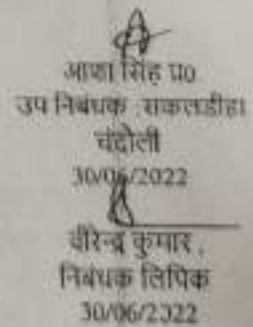 आशा सिंह प्र0
उप निबंधक :सकलडीहा
चंदौली
30/06/2022
वीरेन्द्र कुमार .
निबंधक लिपिक
30/06/2022